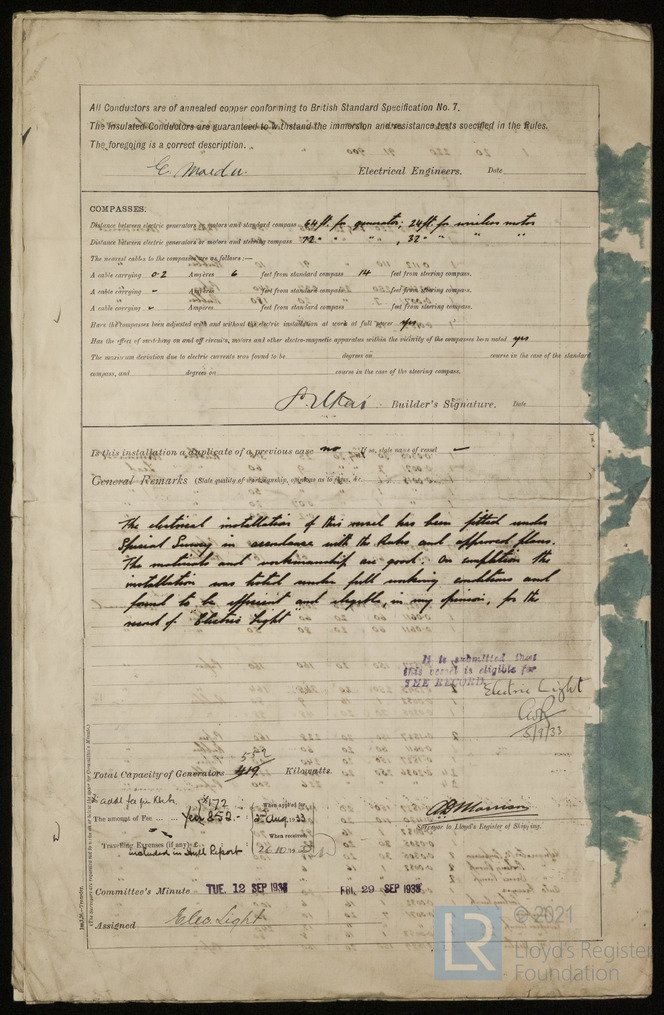 All Conductors are of annealed copper conforming to British Standard Specification No. 7.
The Insulated Conductors are guaranteed to withstand the immersion and resistance tests specified in the Rules.
The foregoing is a correct description.
Electrical Engineers. Date
COMPASSES.
Distance between electric generators or motors and standard compass 64 ft. for generator; 24 ft. for wireless motor
Distance between electric generators or motors and steering compass 72 " " " , 32 " " " "
The nearest cables to the compasses are as follows:—
A cable carrying 0.2 Ampères 6 feet from standard compass 14 feet from steering compass.
A cable carrying Ampères feet from standard compass feet from steering compass.
A cable carrying Ampères feet from standard compass feet from steering compass.
Have the Compasses been adjusted with and without the electric installation at work at full power yes
Has the effect of switching on and off circuits, motors and other electro-magnetic apparatus within the vicinity of the compasses been noted yes
The maximum deviation due to electric currents was found to be degrees on course in the case of the standard
compass, and degrees on course in the case of the steering compass.
Builder's Signature. Date
Is this installation a duplicate of a previous case no If so, state name of vessel —
General Remarks (State quality of workmanship, opinions as to class, &c.
The electrical installation of this vessel has been fitted under
Special Survey in accordance with the Rules and approved plans.
The materials and workmanship are good. On completion the
installation was tested under full working conditions and
found to be efficient and eligible, in my opinion, for the
record of "Electric Light"
It is submitted that
this vessel is eligible for
THE RECORD. Electric Light
5/9/33
Total Capacity of Generators Kilowatts.
The amount of Fee ... ... Yen 852.- When applied for, Aug. 33
Travelling Expenses (if any) £ When received,
included in Hull Report
Surveyor to Lloyd's Register of Shipping.
Committee's Minute TUE. 12 SEP 1933 FRI. 29 SEP 1933
Assigned Elec. Light
© 2021
LR Lloyd's Register
Foundation